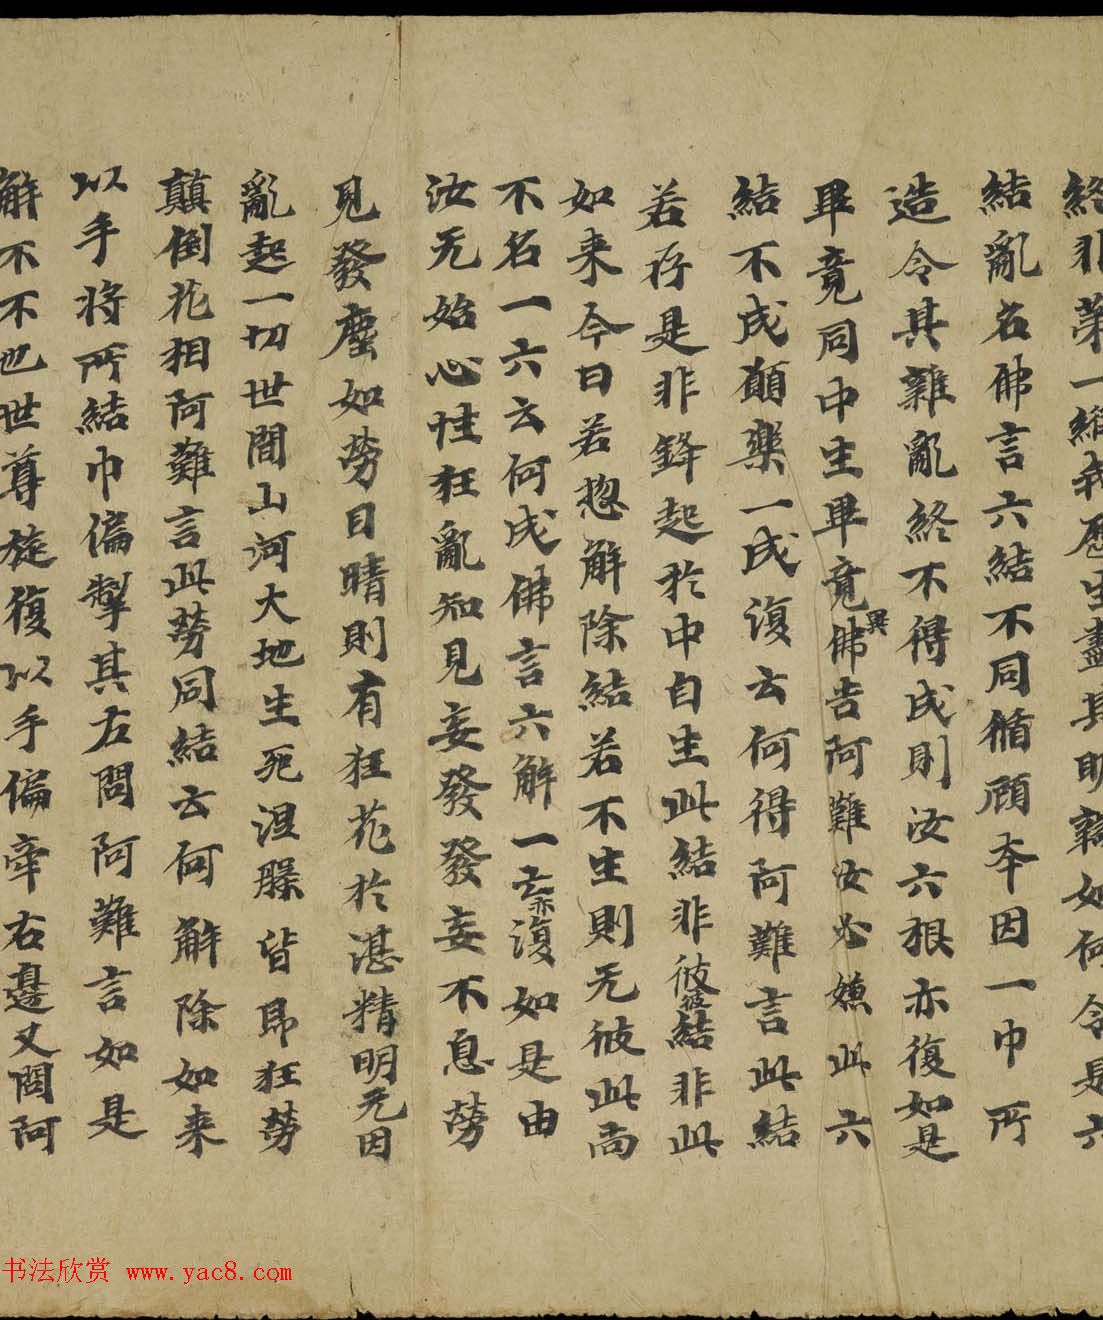 終非第一縱我歷生盡其明辯如何令是六
結亂名佛言六結不同循顧本因一巾所
造令其雜亂終不得成則汝六根亦復如是
畢竟同中生畢竟異佛告阿難汝必嫌此六
結不成願樂一成復云何得阿難言此結
若存是非鋒起於中自生此結非彼彼結非此
如来今日若揔解除結若不生則无彼此尚
不名一六云何成佛言六解一亡亦復如是由
汝无始心性狂亂知見妄發發妄不息勞
見發塵如勞目睛則有狂花於湛精明无因
亂起一切世間山河大地生死涅槃皆即狂勞
顛倒花相阿難言此勞同結云何解除如来
以手將所結巾偏掣其左問阿難言如是
解不不也世尊旋復以手偏牽右邊又問阿
书法欣赏 www.yac8.com